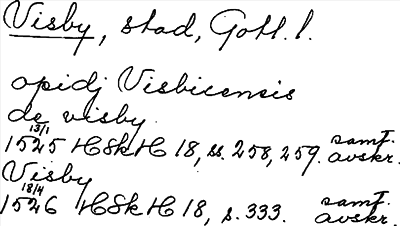 Visby, stad, Gotl. l.
opidj Visbicensis
de visby.
13/1
1525 HSkH 18, ss. 258, 259. samt. avskr.
Visby
18/4
1526 HSkH 18, s. 333. samt. avskr.